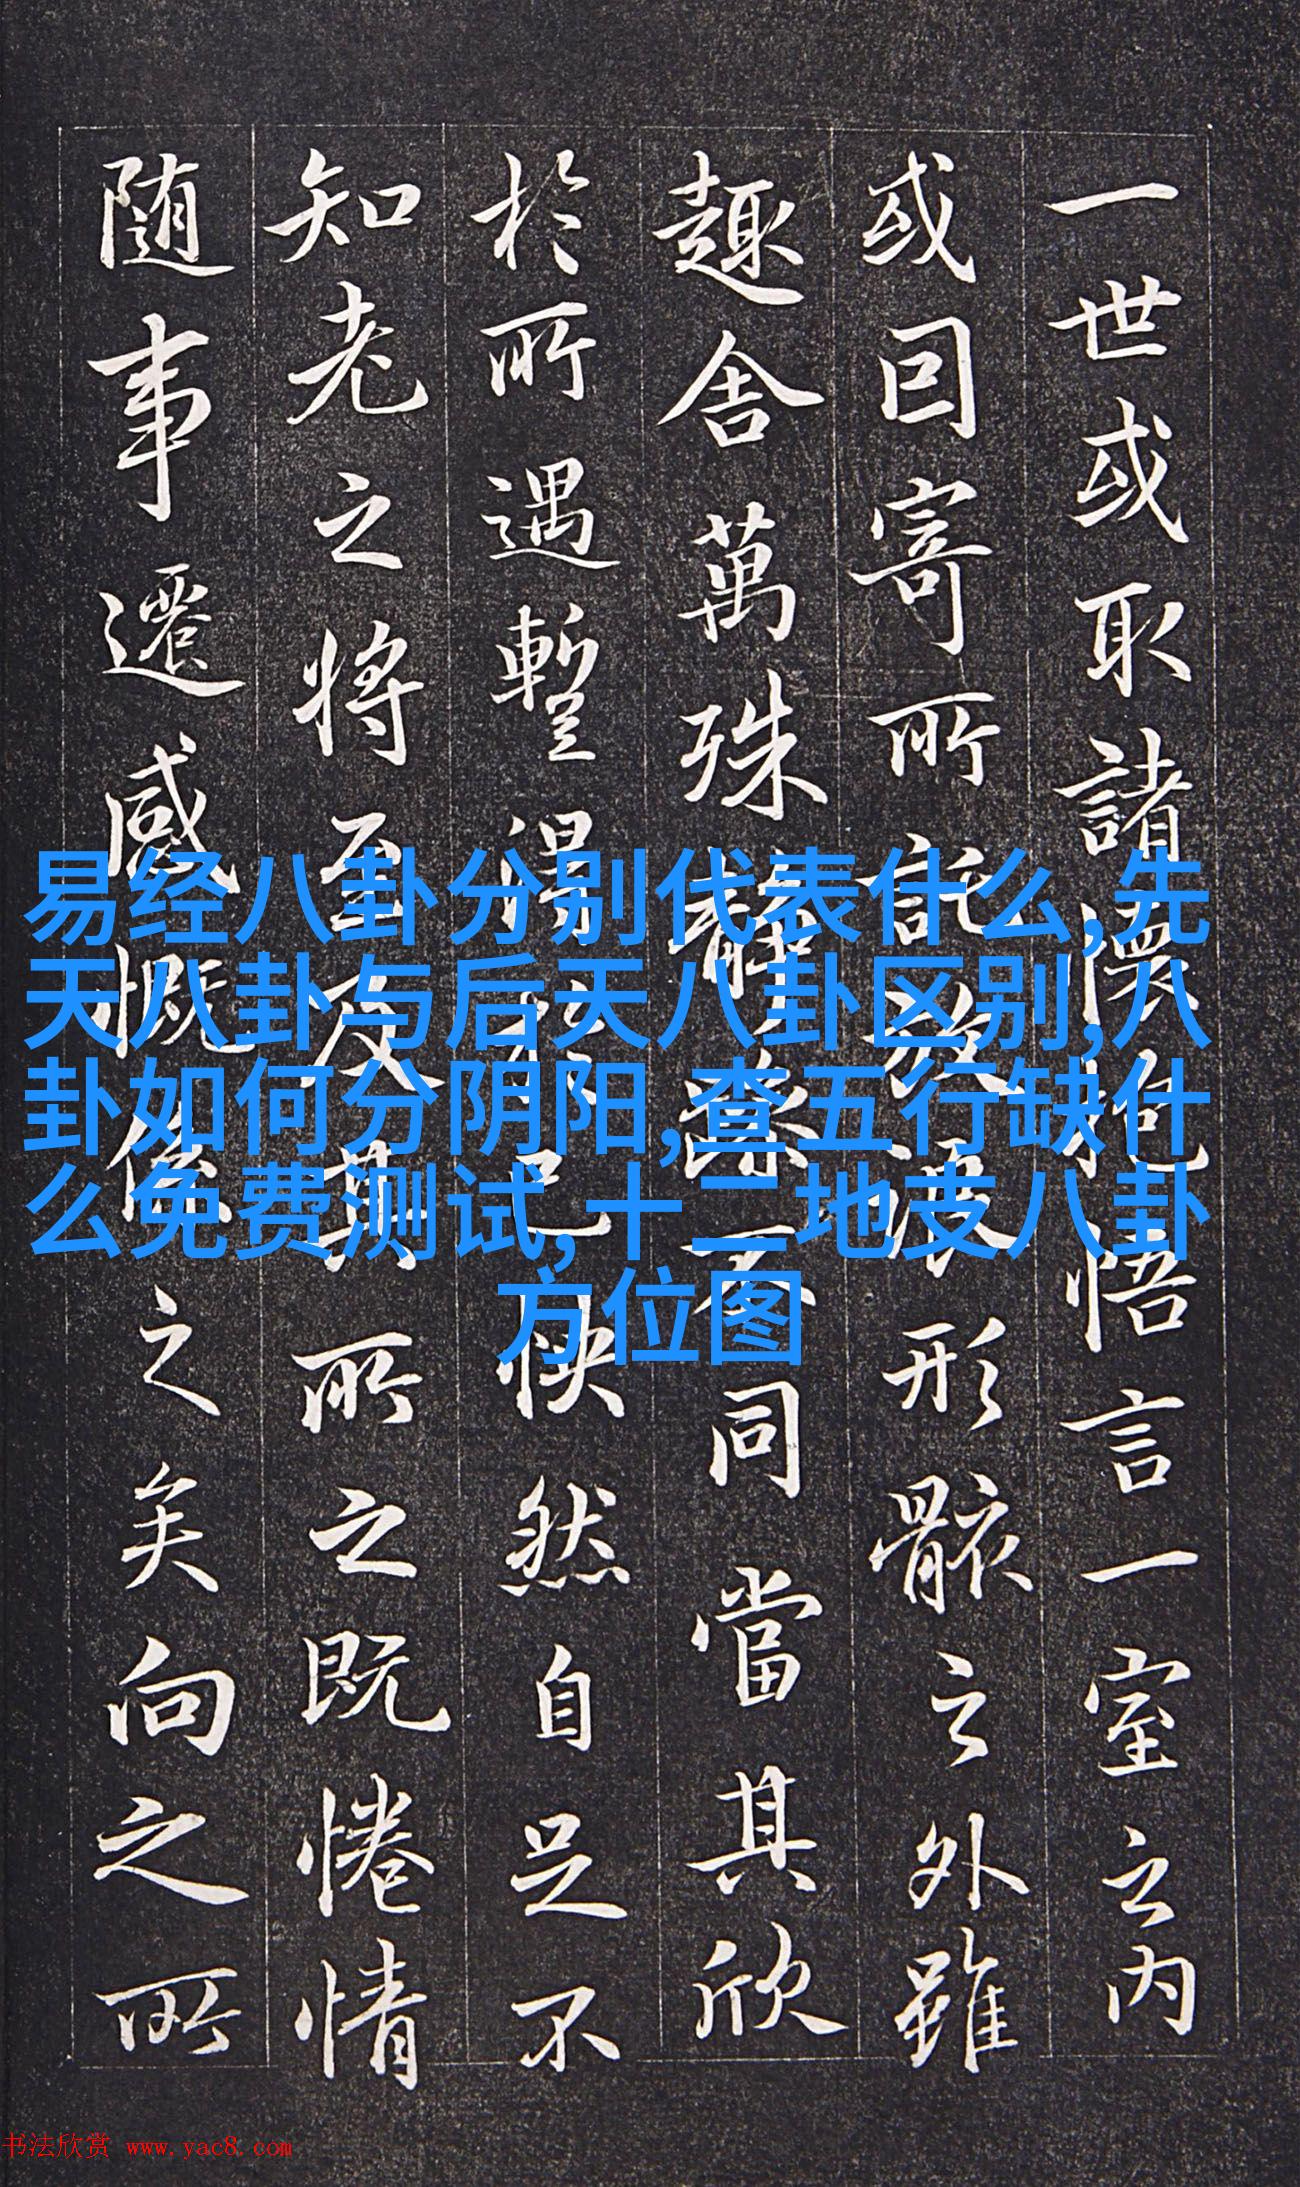 一世或取諸懷抱悟言一室之内
或因寄所託放浪形骸之外雖
趣舍萬殊靜躁不同當其欣
於所遇暫得於己快然自足不
知老之將至及其所之既惓情
随事遷感慨係之矣向之所
易经八卦分别代表什么,先
天八卦与后天八卦区别,八
卦如何分阴阳,查五行缺什
么免费测试,十二地支八卦
方位图
书法欣赏 www.yac8.com